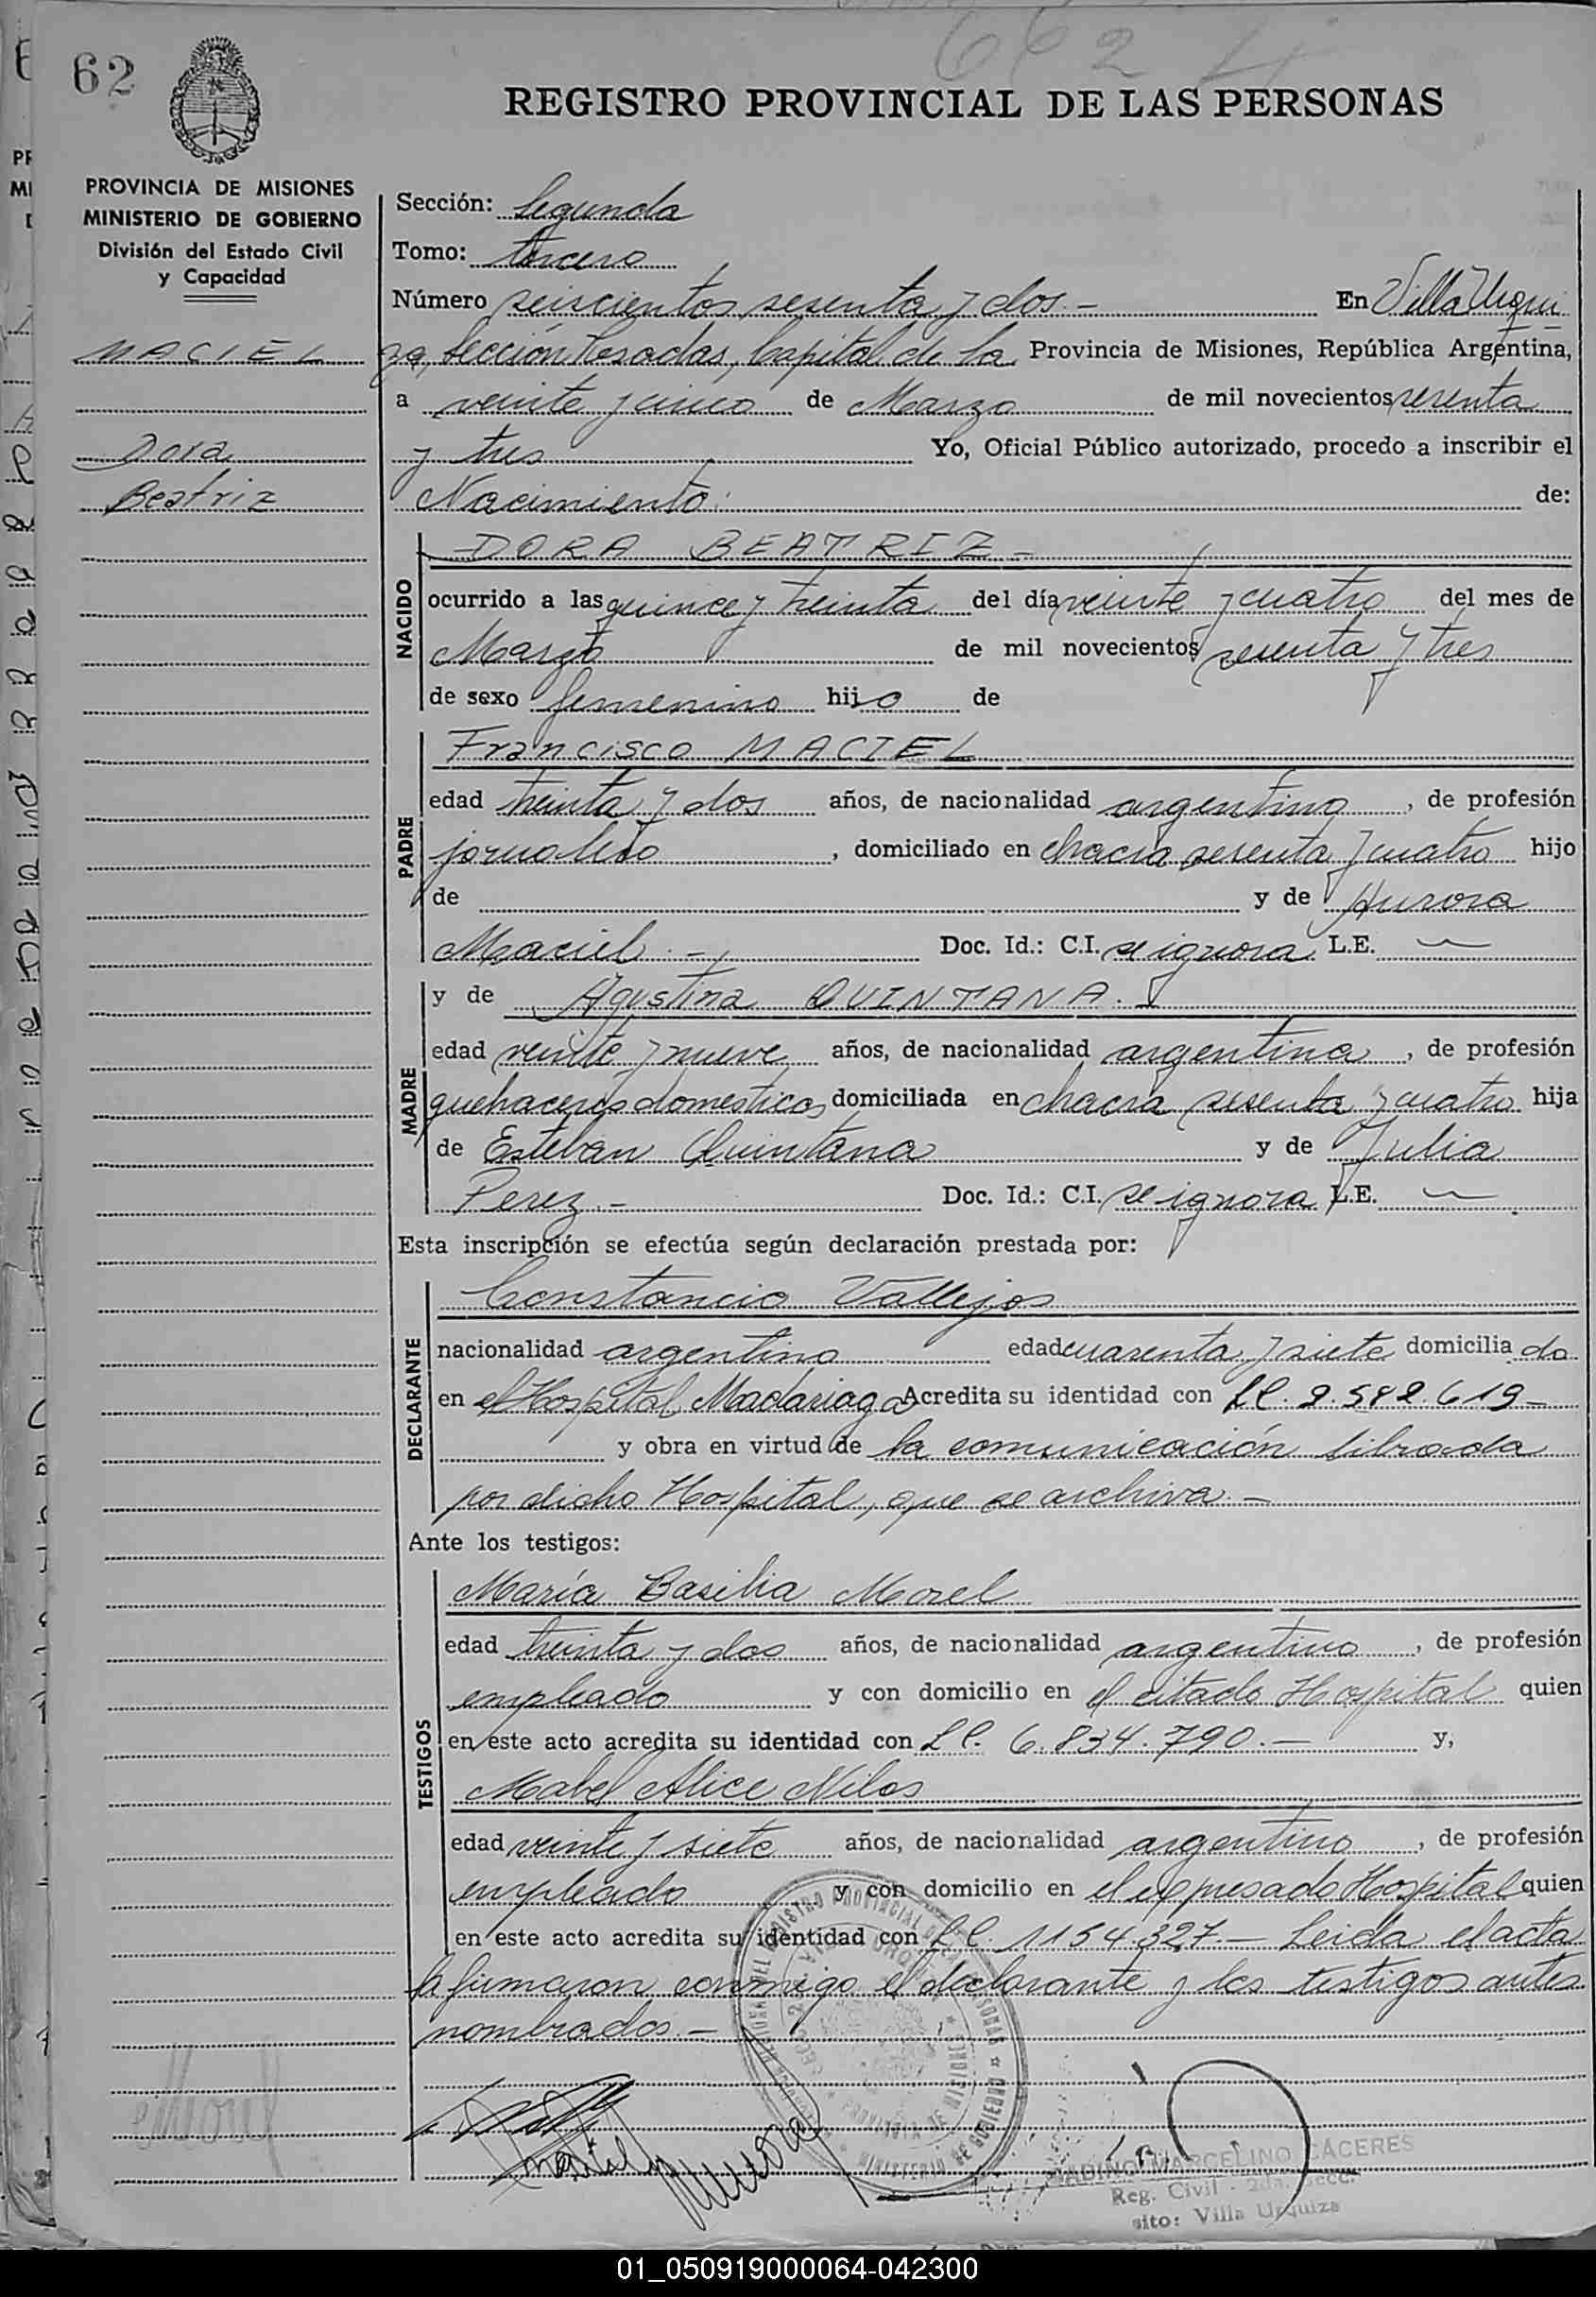 662
62
REGISTRO PROVINCIAL DE LAS PERSONAS
PROVINCIA DE MISIONES
MINISTERIO DE GOBIERNO
División del Estado Civil
y Capacidad
MACIEL
Dora
Beatriz
Sección: Segunda
Tomo: tercero
Número seiscientos sesenta y dos.- En Villa Urqui
za, Sección Posadas, Capital de la Provincia de Misiones, República Argentina,
a veinte y cinco de Marzo de mil novecientos sesenta
y tres Yo, Oficial Público autorizado, procedo a inscribir el
Nacimiento de:
NACIDO
DORA BEATRIZ -
ocurrido a las quince y treinta del día veinte y cuatro del mes de
Marzo de mil novecientos sesenta y tres
de sexo femenino hijo de
PADRE
Francisco MACIEL
edad treinta y dos años, de nacionalidad argentino, de profesión
jornalero, domiciliado en chacra sesenta y cuatro hijo
de y de Aurora
Maciel.- Doc. Id.: C.I. se ignora L.E. —
MADRE
y de Agustina QUINTANA.-
edad veinte y nueve años, de nacionalidad argentina, de profesión
quehaceres domesticos domiciliada en chacra sesenta y cuatro hija
de Esteban Quintana y de Julia
Perez.- Doc. Id.: C.I. se ignora L.E. —
Esta inscripción se efectúa según declaración prestada por:
DECLARANTE
Constancio Vallejos
nacionalidad argentino edad cuarenta y siete domicilia do
en el Hospital Madariaga Acredita su identidad con LE. 2.582.619-
y obra en virtud de la comunicación librada
por dicho Hospital, que se archiva.-
Ante los testigos:
TESTIGOS
María Basilia Morel
edad treinta y dos años, de nacionalidad argentino, de profesión
empleado y con domicilio en el citado Hospital quien
en este acto acredita su identidad con LC. 6.834.790.- y,
Mabel Alice
edad veinte y siete años, de nacionalidad argentino, de profesión
empleado y con domicilio en el expresado Hospital quien
en este acto acredita su identidad con LC. 1154.327.- Leida el acta
la firmaron conmigo el declarante y los testigos antes
nombrados.-
MARCELINO CÁCERES
Reg. Civil - 2da. Secc.
sito: Villa Urquiza
01_050919000064-042300